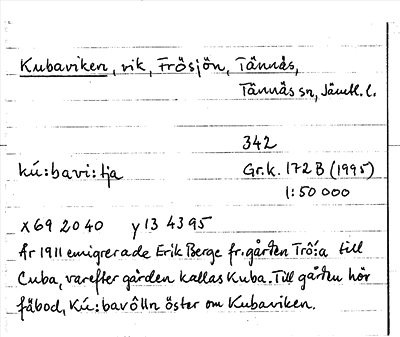 Kubaviken, vik, Frösjön, Tännäs,
Tännäs sn, Jämtl. l.
342
kú:bavi:tja
Gr.k. 172 B (1995)
1:50 000
x69 20 40 y13 43 95
År 1911 emigrerade Erik Berge fr. gården Trô:a till
Cuba, varefter gården kallas Kuba. Till gården hör
fäbod, Kú:bavôlln öster om Kubaviken.